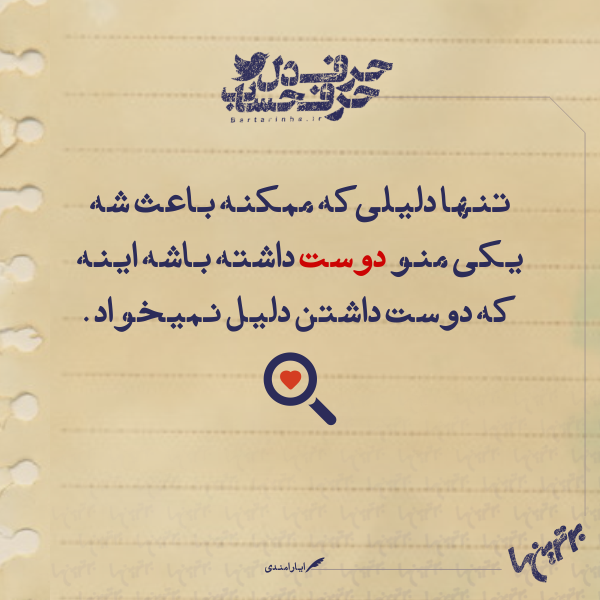 حرف دل
حرف حساب
Bartarinha.ir
تنها دلیلی که ممکنه باعث شه
یکی منو دوست داشته باشه اینه
که دوست داشتن دلیل نمیخواد.
ایارامندی
برترین ها